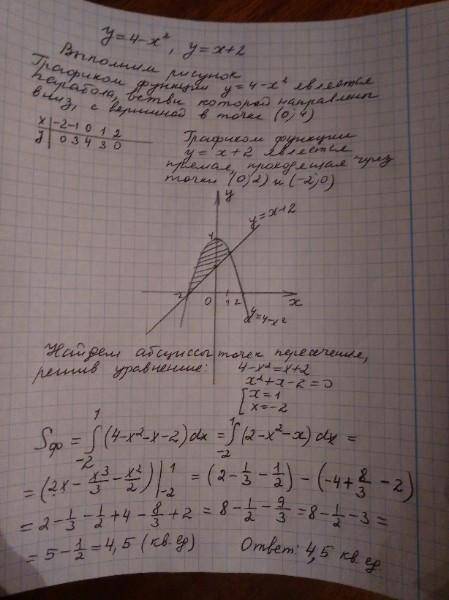 y=4-x², y=x+2
Выполним рисунок
Графиком функции y=4-x² является
парабола, ветви которой направлены
вниз, с вершиной в точке (0;4)
x | -2 -1 0 1 2
y | 0 3 4 3 0
Графиком функции
y=x+2 является
прямая, проходящая через
точки (0;2) и (-2;0)
y
y=x+2
4
-2 0 1 2 x
y=4-x²
Найдем абсциссы точек пересечения,
решив уравнение: 4-x²=x+2
x²+x-2=0
[x=1
x=-2
Sф = ∫₋₂¹ (4-x²-x-2)dx = ∫₋₂¹ (2-x²-x)dx =
= (2x - x³/3 - x²/2) |₋₂¹ = (2 - 1/3 - 1/2) - (-4 + 8/3 - 2)
= 2 - 1/3 - 1/2 + 4 - 8/3 + 2 = 8 - 1/2 - 9/3 = 8 - 1/2 - 3 =
= 5 - 1/2 = 4,5 (кв.ед) Ответ: 4,5 кв.ед.